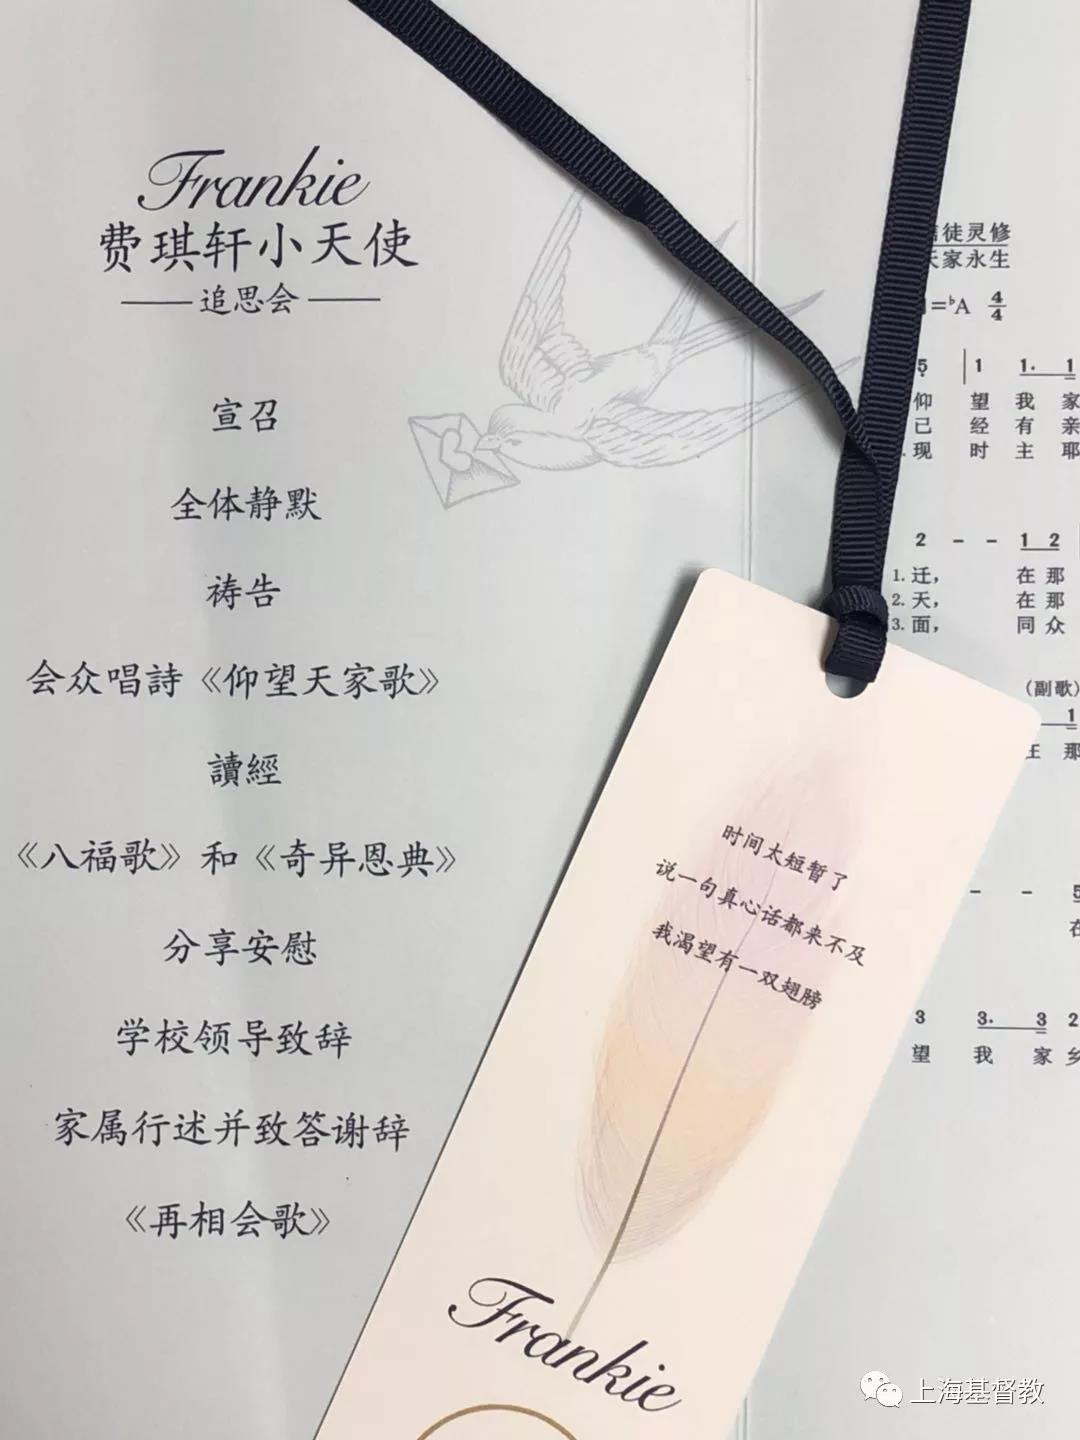 Frankie
费琪轩小天使
追思会
宣召
全体静默
祷告
会众唱詩《仰望天家歌》
讀經
《八福歌》和《奇异恩典》
分享安慰
学校领导致辞
家属行述并致答谢辞
《再相会歌》
徒灵修
天家永生
=♭A 4/4
5 | 1 1· 1
仰 望 我 家
已 经 有 亲
现 时 主 耶
2 - - 1 2
1. 迁， 在 那
2. 天， 在 那
3. 面， 同 众
(副歌)
1
那
- - 5
在
3 3· 3 2
望 我 家 乡
时间太短暂了
说一句真心话都来不及
我渴望有一双翅膀
Frankie
上海基督教